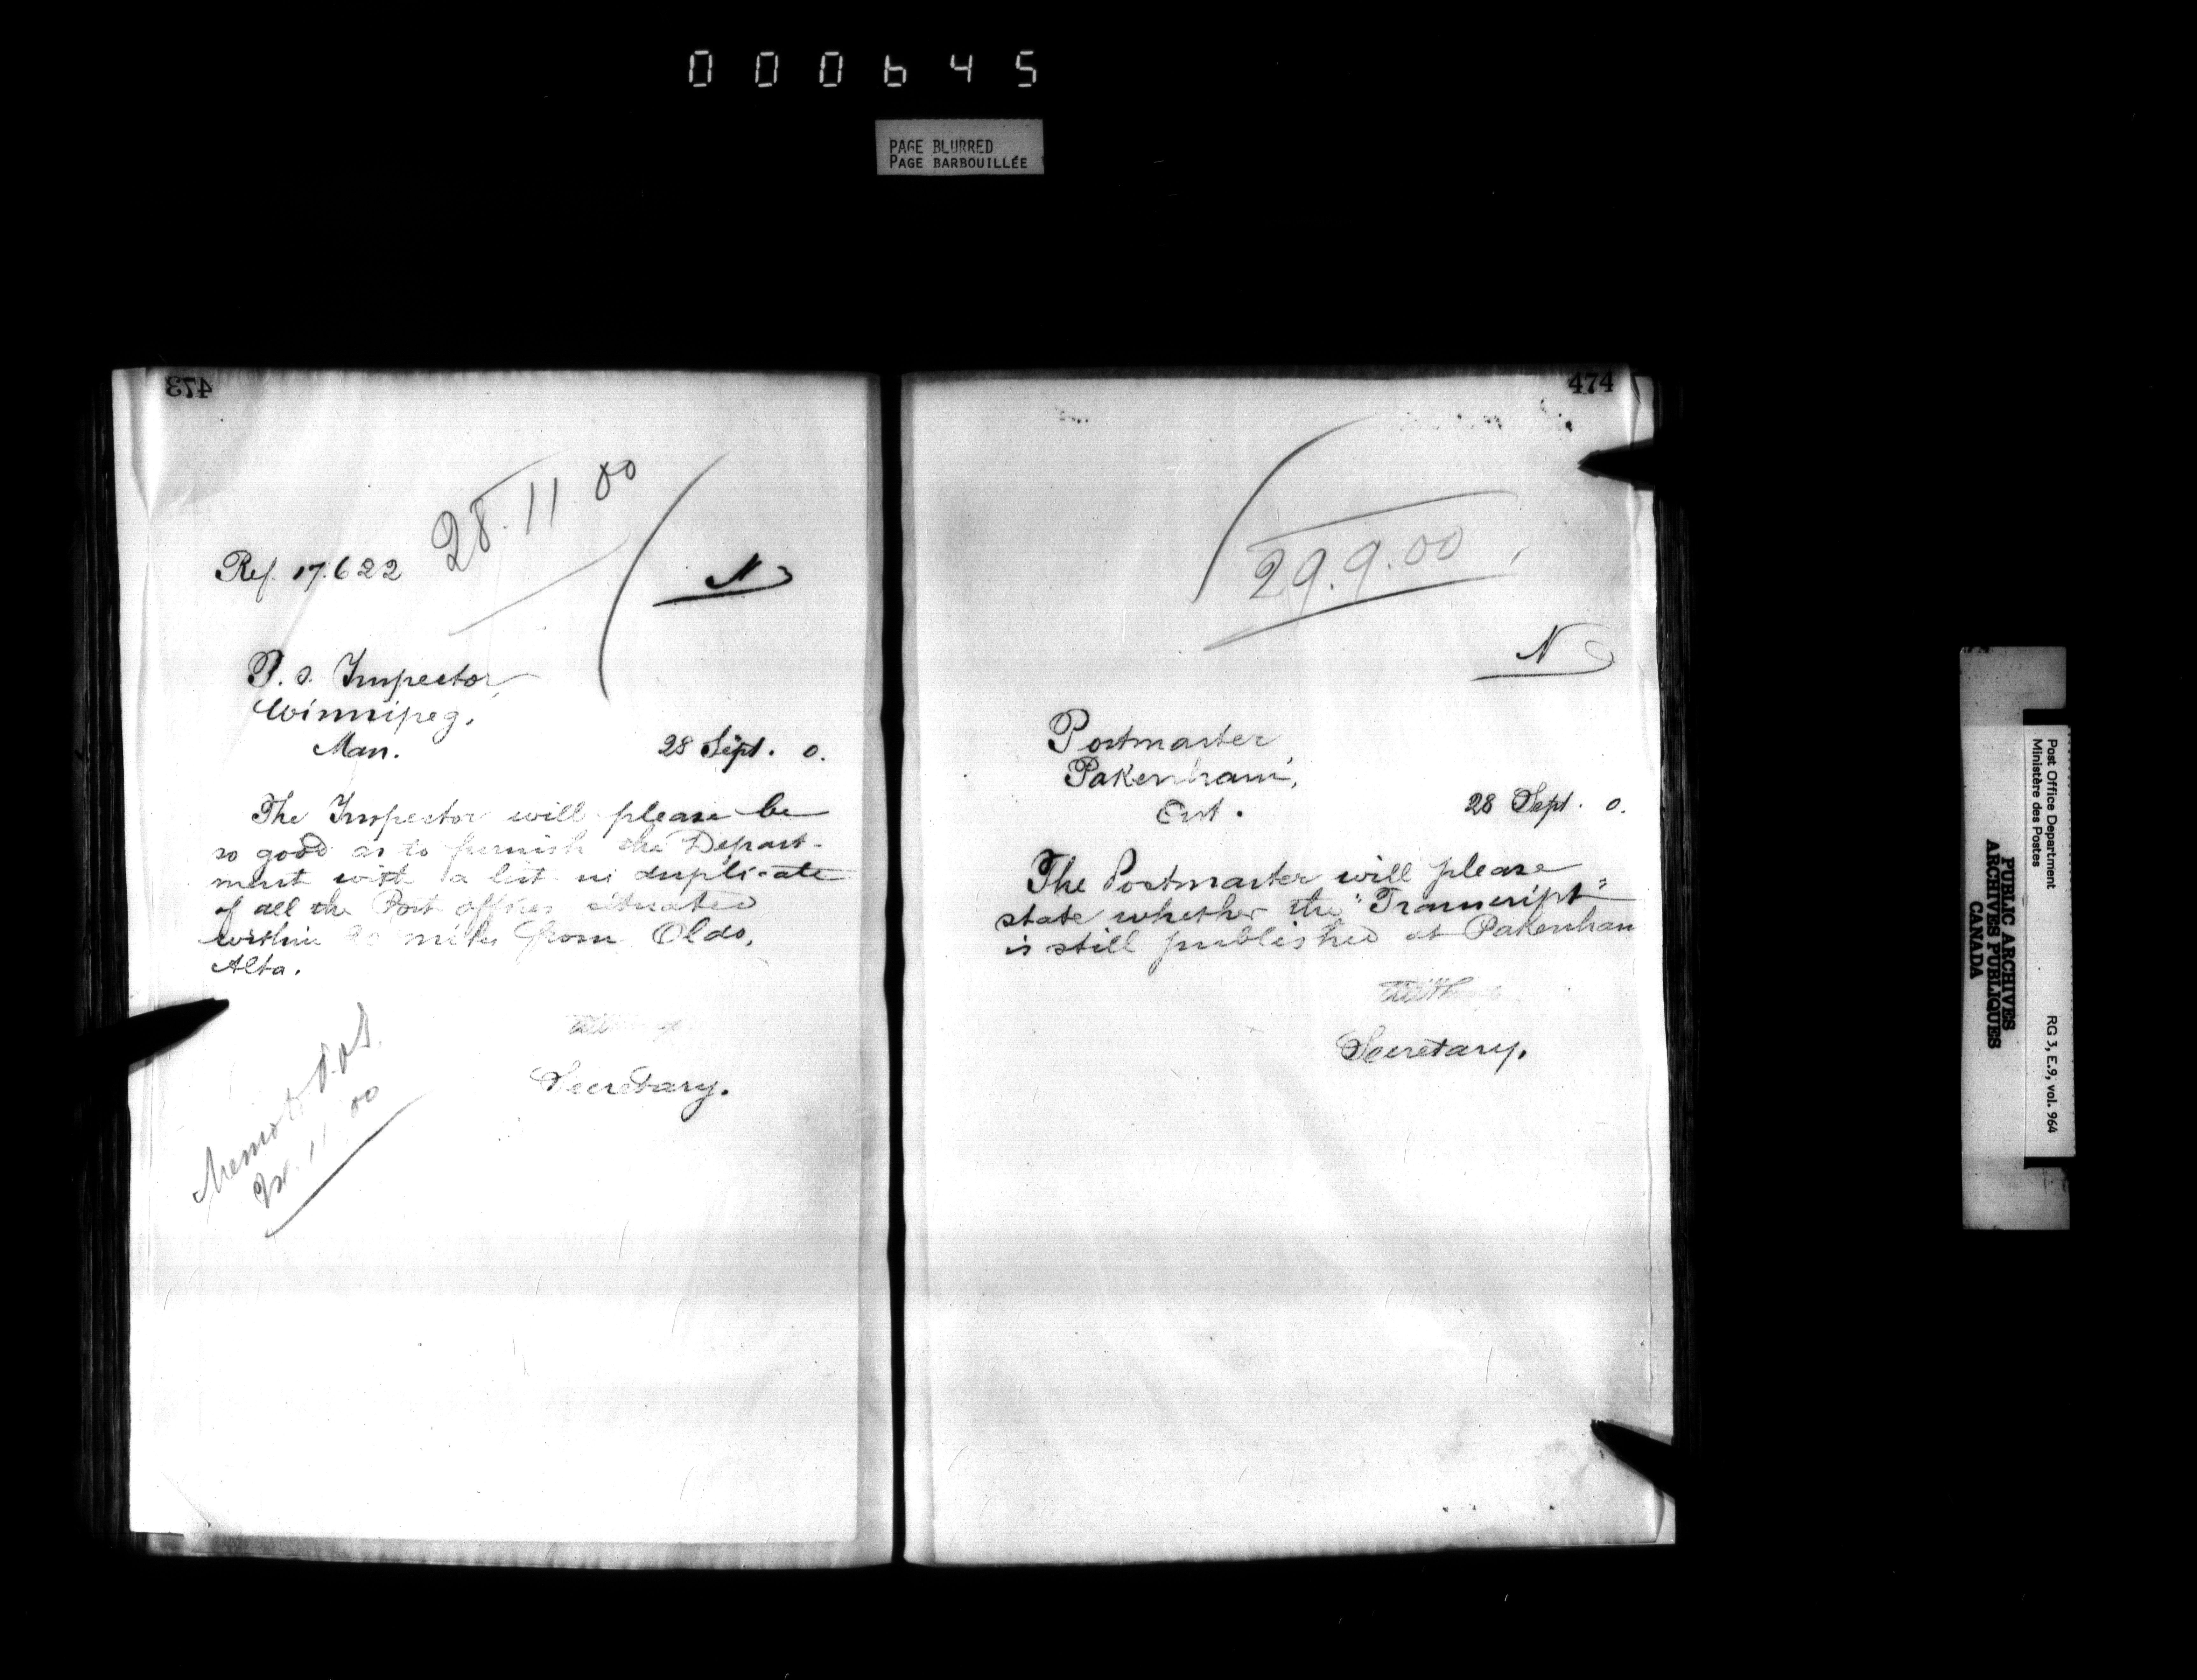 000645
PAGE BLURRED
PAGE BARBOUILLÉE
473
28.11.00
Ref. 17.622
N
P. O. Inspector,
Winnipeg,
Man.
28 Sept. 0.
The Inspector will please be
so good as to furnish the Depart-
ment with a list in duplicate
of all the Post offices situated
within miles from Olds,
Alta.
Secretary.
Memo to P.O.I.
28.11.00
474
29.9.00
N
Postmaster,
Pakenham,
Ont.
28 Sept. 0.
The Postmaster will please
state whether the "Transcript"
is still published at Pakenham
Secretary.
Post Office Department
Ministère des Postes
RG 3, E.9, vol. 964
PUBLIC ARCHIVES
ARCHIVES PUBLIQUES
CANADA